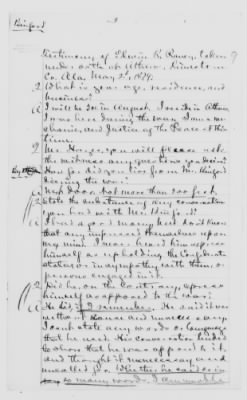 Hinford
Testimony of Edwin R. Raney, taken
under oath at Athens, Limestone
Co. Ala. May 2d 1879.
Q What is your age, residence, and
business?
A I will be 50 in August. I reside in Athens
I was here during the war. I am a me-
chanic, and Justice of the Peace at this
time.
Q Mr. you will please ask
the witness any questions you desire.
How far did you live from Mr. Hinford
during the war?
A Next door. Not more than 200 feet.
Q State the substance of any conversation
you had with Mr. Hinford.
A I had a good many, but I don't know
that any impressed themselves upon
my mind. I never heard him express
himself as upholding the Confederate
states or in sympathy with them, or
persons engaged in it.
Q Did he, on the contrary, express
himself as opposed to the war?
A He did, if I remember. He said it was
neither and unnecessary.
I cant state any words or language
that he used. His conversation tended
to show that he was opposed to it,
and thought it unnecessary and
uncalled for. Whether he said so in
so many words, I am unable